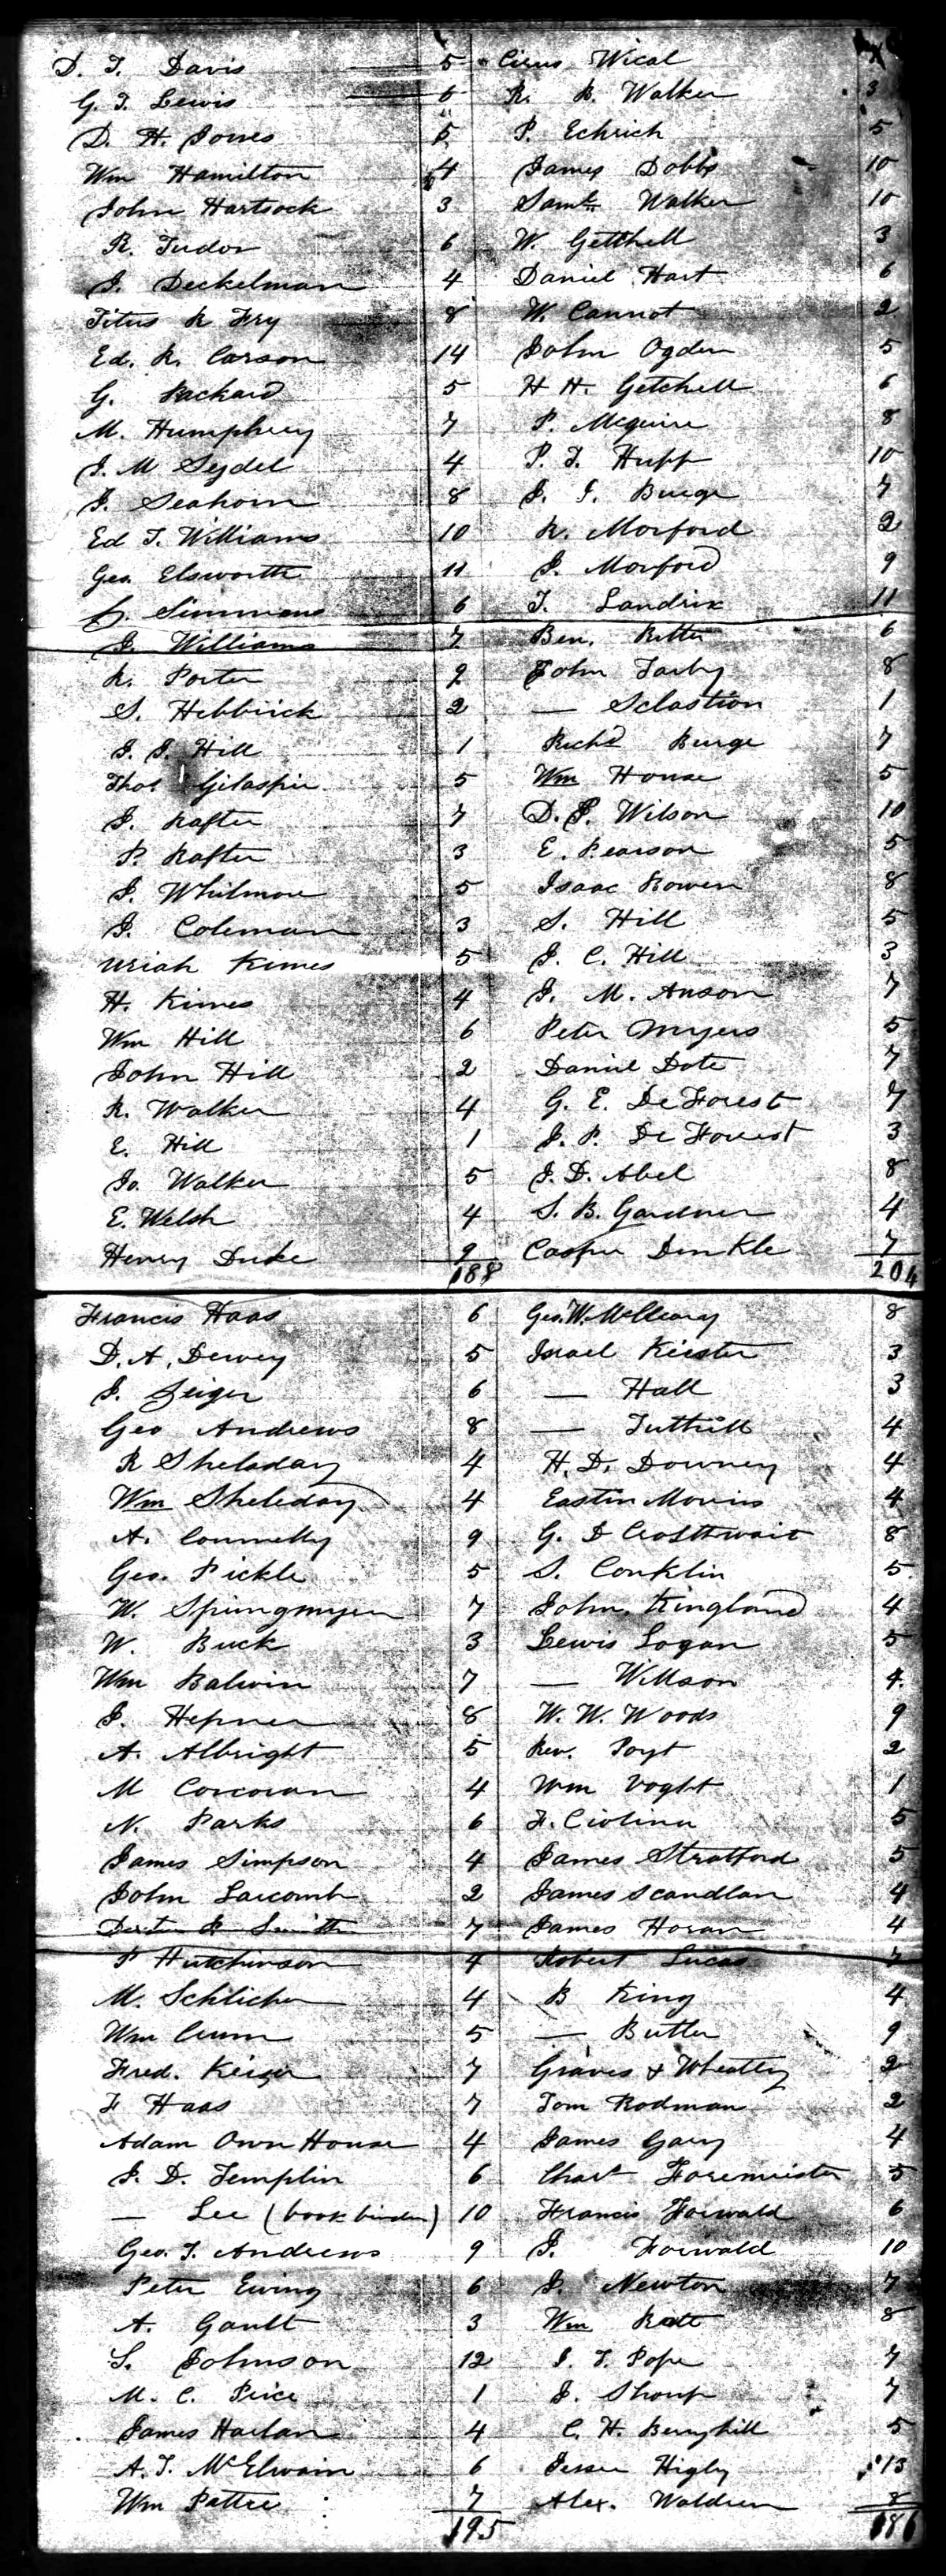 D. T. Davis 5 Cirus Wical
G. T. Lewis 6 R. R. Walker 3
D. H. Jones 5 P. Echrich 5
Wm Hamilton 4 James Dobbs 10
John Hartsock 3 Saml. Walker 10
R. Tudor 6 W. Getthell 3
J. Deckelman 4 Daniel Hart 6
Titus R Fry 8 W. Cannot 2
Ed. R. Carson 14 John Ogden 5
G. Packard 5 H H. Getchell 6
M. Humphrey 7 P. Mcguire 8
J. M Seydel 4 P. T. Hupp 10
J. Seahorn 8 J. J. Burge 7
Ed T. Williams 10 R. Morford 2
Geo. Elsworth 11 J. Morford 9
Simmons 6 T. Landrix 11
J. Williams 7 Ben. Ritter 6
R. Porter 2 John Tarby 8
S. Hebbrick 2 — Sclastion 1
J. J. Hill 1 Richd Burge 7
Thos Gilaspie 5 Wm House 5
J. Rafter 7 D. J. Wilson 10
P. Rafter 3 E. Pearson 5
J. Whitmore 5 Isaac Bowen 8
J. Coleman 3 S. Hill 5
Uriah Kimes 5 J. C. Hill 3
H. Kimes 4 J. M. Anson 7
Wm Hill 6 Peter Myers 5
John Hill 2 Daniel Dote 7
R. Walker 4 G. E. DeForest 7
E. Hill 1 J. P. De Forrest 3
Jo. Walker 5 J. D. Abel 8
E. Welsh 4 S. B. Gardner 4
Henry Duke 9 Casper Dinkle 7
188 204
Francis Haas 6 Geo. W. McCleary 8
D. A. Dewey 5 Israel Keister 3
J. Zeiger 6 — Hall 3
Geo Andrews 8 — Tuthill 4
R Sheladay 4 H. D. Downey 4
Wm Sheleday 4 Eastin Morris 4
A. Connelly 9 G. D Crosthwait 8
Geo. Pickle 5 S. Conklin 5
W. Springmyer 7 John Kingland 4
W. Buck 3 Lewis Logan 5
Wm Balwin 7 — Willson 4
J. Hepner 8 W. W. Woods 9
A. Albright 5 Rev. Poyt 2
M Corcoran 4 Wm Voght 1
N. Parks 6 F. Ciolina 5
James Simpson 4 James Stratford 5
John Larcomb 2 James Scandlan 4
Smith 7 James Horan 4
P Hutchinson 4 Robert Lucas 7
M. Schlicher 4 B King 4
Wm Crum 5 — Butler 9
Fred. Keiser 7 Graves & Wheatley 2
F Haas 7 Tom Rodman 2
Adam Own House 4 James Gary 4
J. D. Templin 6 Chast Foremeister 5
— Lee (book binder) 10 Francis Forwald 6
Geo. T. Andrews 9 J. Forwald 10
Peter Ewing 6 J. Newton 7
A. Gault 3 Wm Ratt 8
S. Johnson 12 J. T. Pope 7
M. C. Price 1 J. Shoup 7
James Harlan 4 C. H. Berryhill 5
A. T. McElwain 6 Jesse Higby 13
Wm Pattee 7 Alex. Waldren 8
195 186